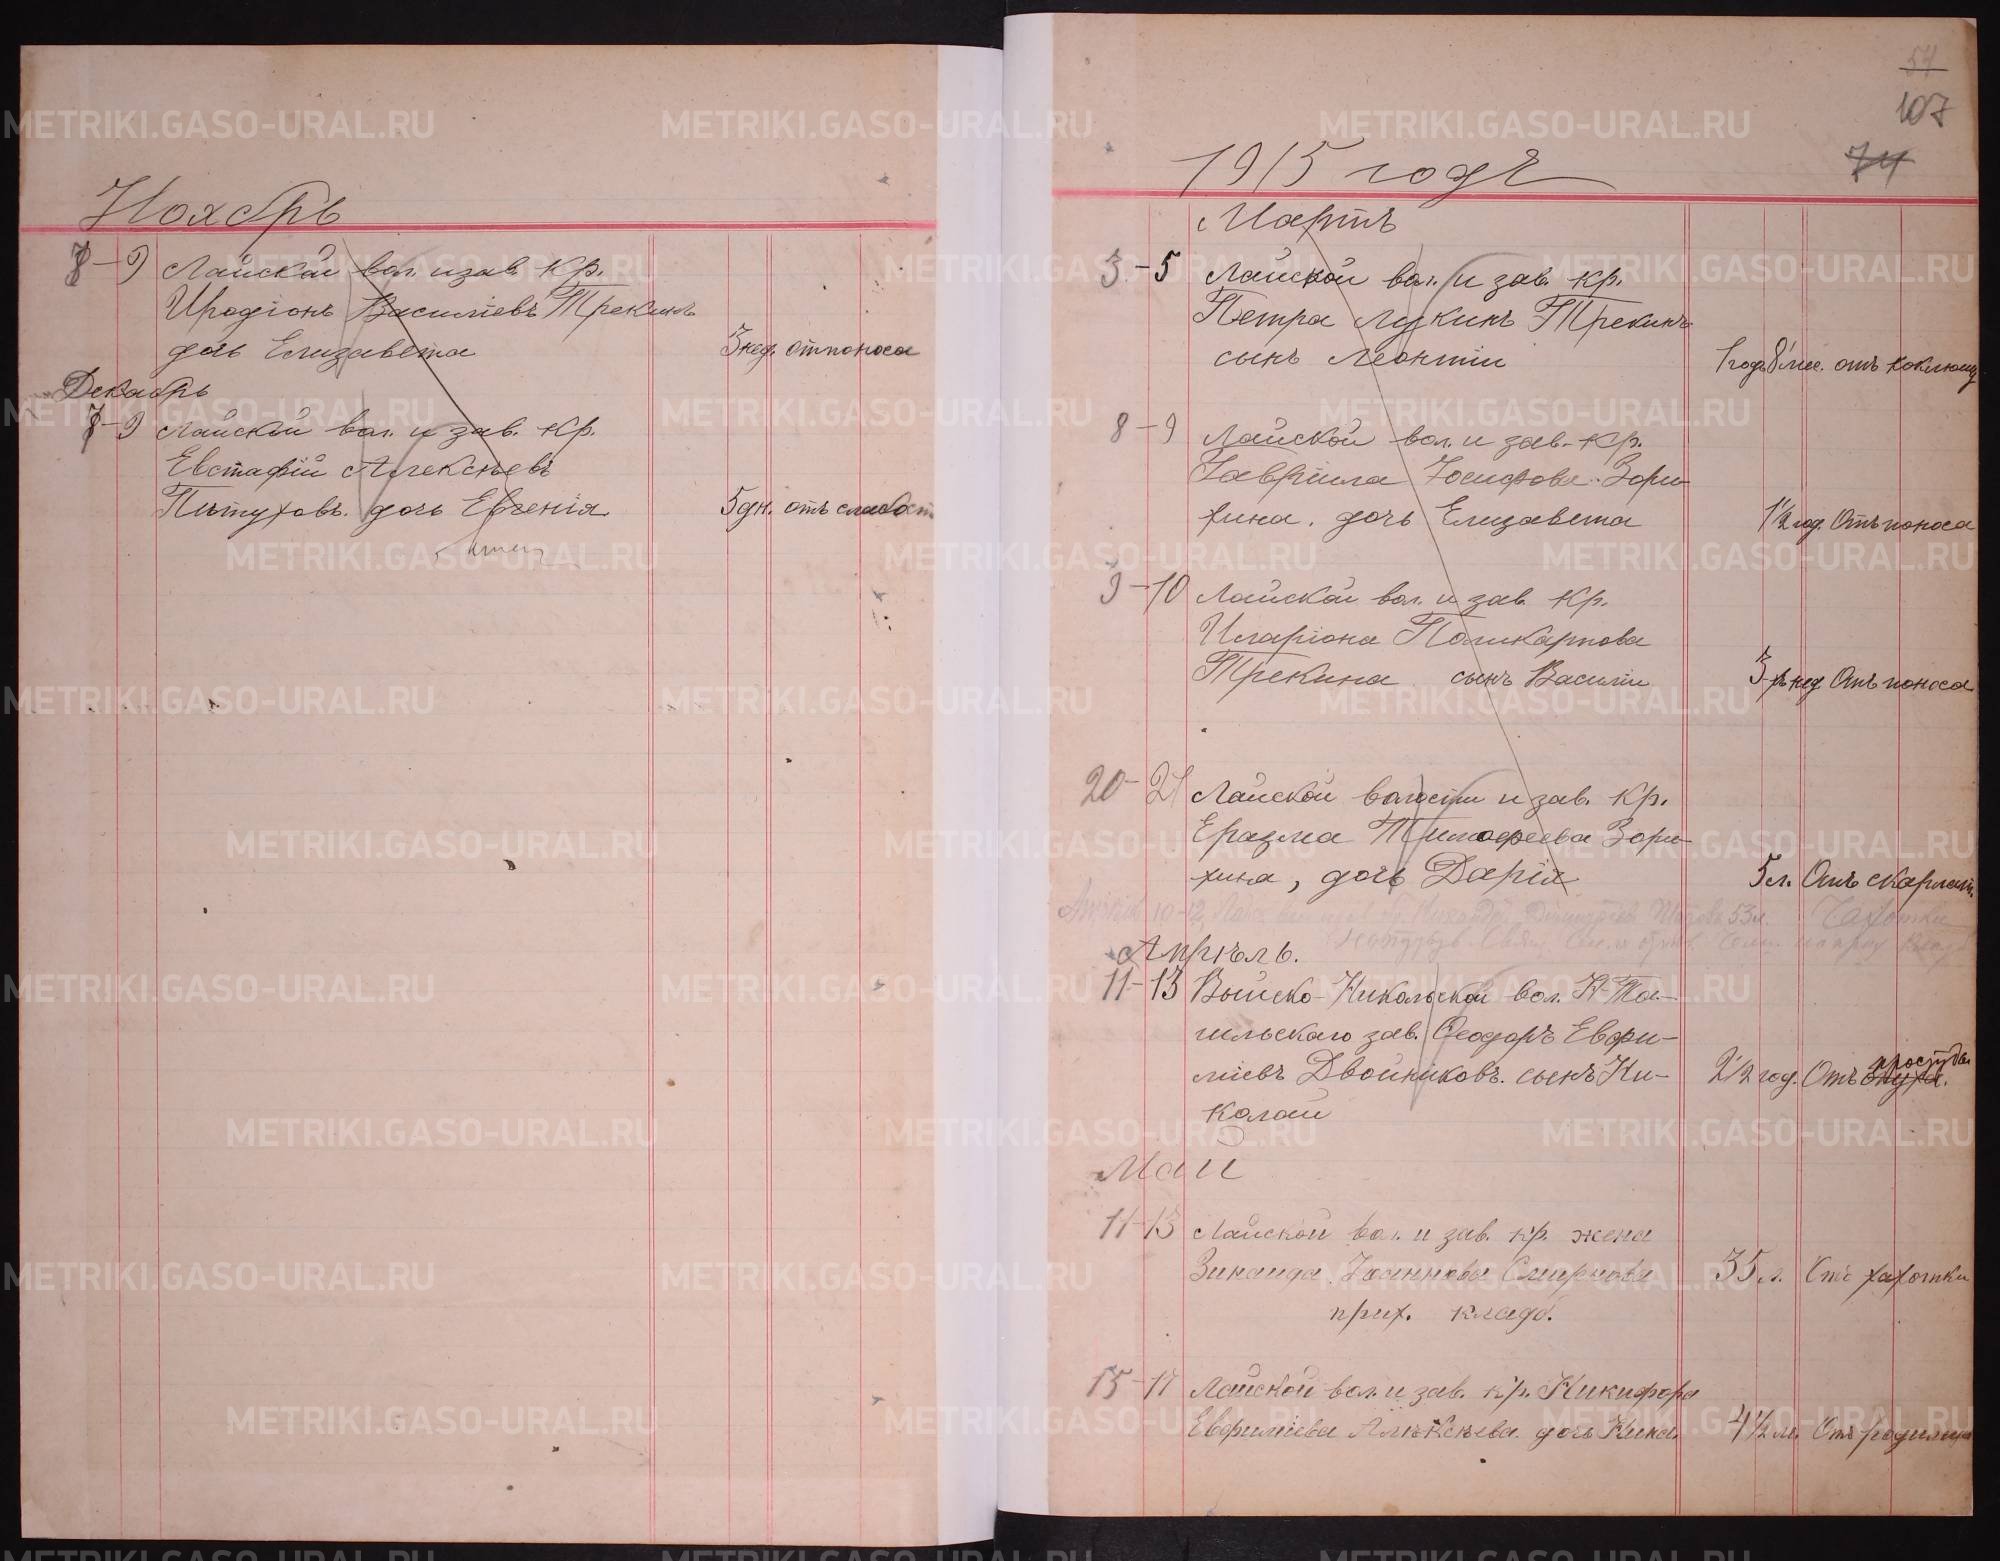 Ноябрь
7-9 Лайской вол. и зав. кр.
Иродіонъ Василіевъ Трекинъ
дочь Елизавета 3 нед. от поноса
Декабрь
7-9 Лайской вол. и зав. кр.
Евстафій Алексѣевъ
Пѣтуховъ. дочь Евгенія 5 дн. отъ слабост
54
107
74
1915 годъ
Мартъ
3-5 Лайской вол. и зав. кр.
Петра Лукинъ Трекинъ
сынъ Леонтій 1 годъ 8 мес. отъ коклюш
8-9 Лайской вол. и зав. кр.
Гавріила Іосифова Зори-
хина. дочь Елизавета 1 1/2 год. Отъ поноса
9-10 Лайской вол. и зав. кр.
Иларіона Поликарпова
Трекина сынъ Василій 3 нед Отъ поноса
20-21 Лайской волости и зав. кр.
Еразма Тимофеева Зори-
хина, дочь Дарія 5 л. Отъ скарлат.
10-12 53 л. Чахотки
Апрѣль.
11-13 Выйско-Никольской вол. Н-Та-
гильскаго зав. Ѳеодоръ Евфи-
міевъ Двойниковъ. сынъ Ни- 2 1/2 год. Отъ простуды
колай
Май
11-13 Лайской вол. и зав. кр. жена
Зинаида Іоаннова Смирнова 35 л. Отъ чахотки
прих. кладб.
15-17 Лайской вол. и зав. кр. Никифора
Евфиміева Алексѣева. дочь Нина. 4 1/2 м. От родимца
METRIKI.GASO-URAL.RU